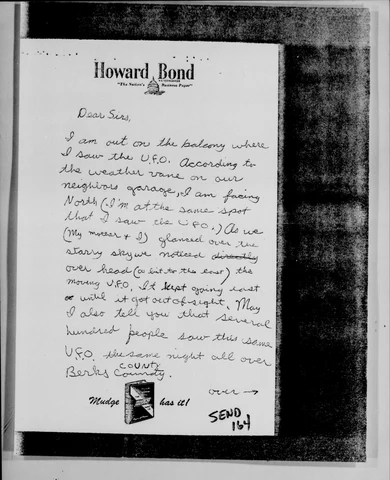 Howard Bond
"The Nation's Business Paper"
Dear Sirs,
I am out on the balcony where
I saw the U.F.O. According to
the weather vane on our
neighbors garage, I am facing
North (I'm at the same spot
that I saw the U.F.O.) As we
(My mother & I) glanced over the
starry sky we noticed directly
over head (a bit to the east) the
moving U.F.O. It kept going east
or until it got out of sight. May
I also tell you that several
hundred people saw this same
U.F.O. the same night all over
COUNTY
Berks County.
over →
Mudge has it!
SEND
164